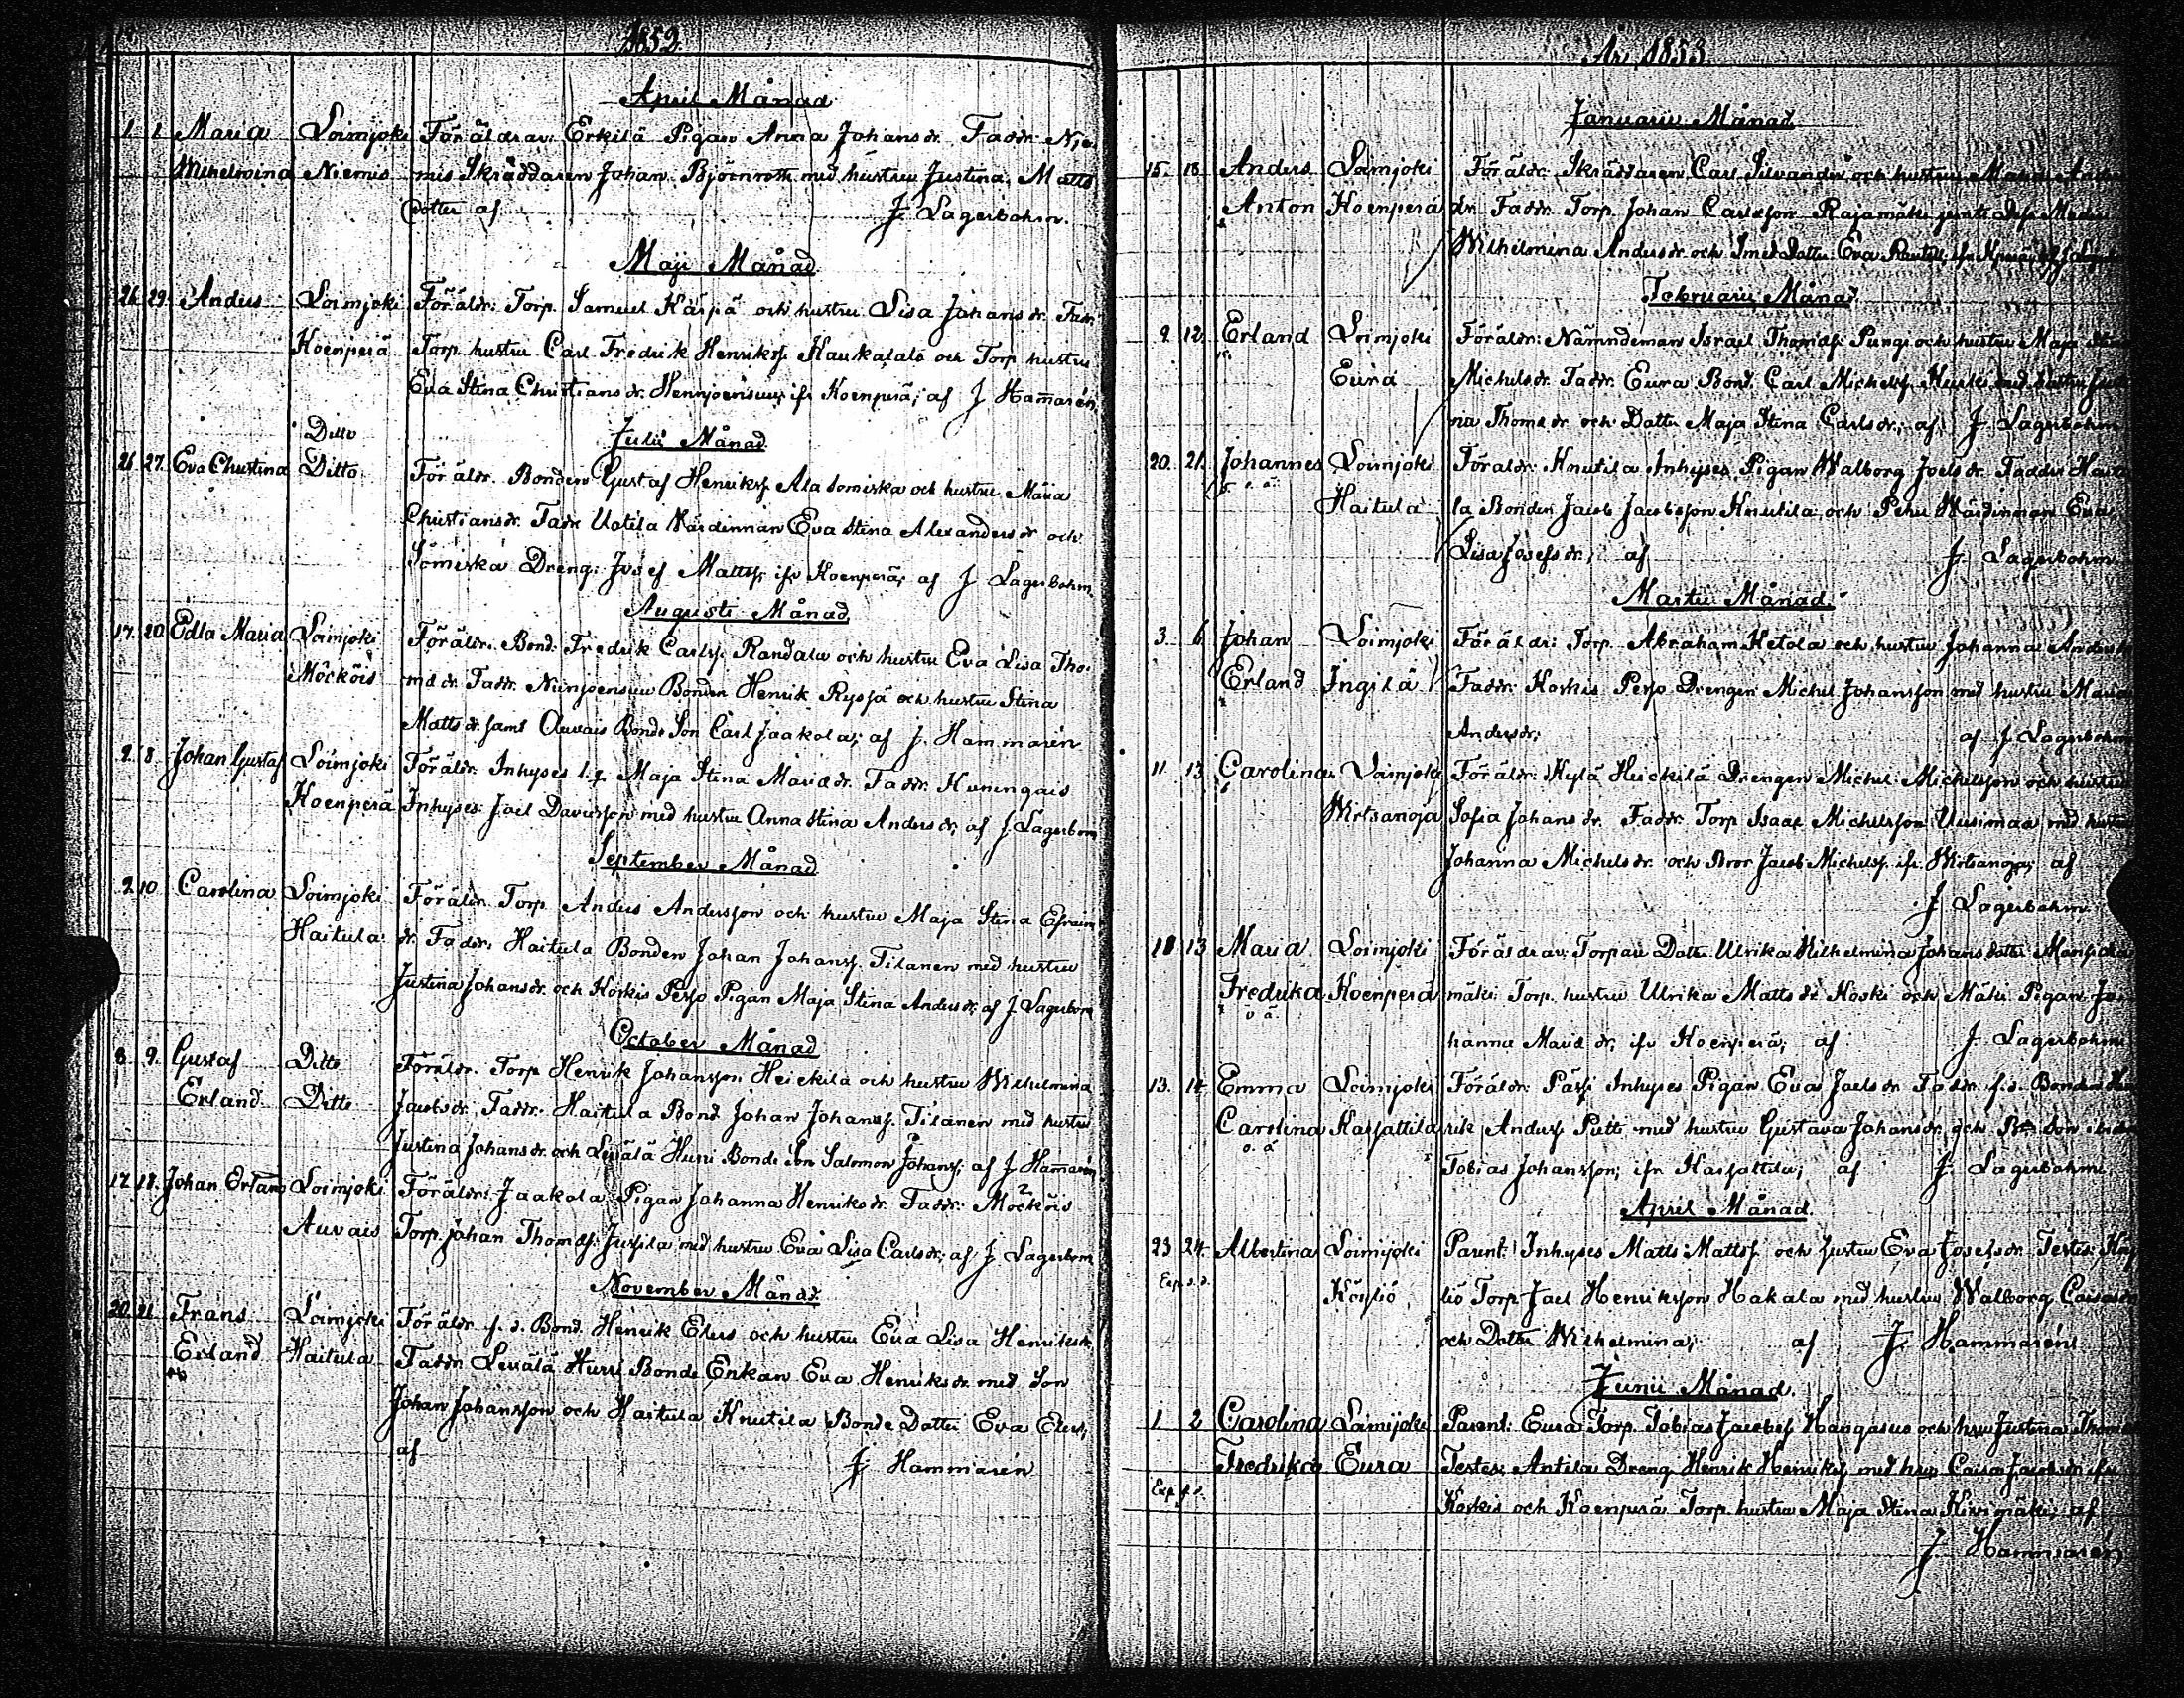 1852
April Månad
1. 1. Maria Loimjoki Föräldrar: Erkilä Pigan Anna Johansdr. Faddr: Nie
Wilhelmina Niemis mis Skräddaren Johan Björnroth med hustru Justina Matts
dotter af J. Lagerbohm.
Maji Månad
26. 29. Anders Loimjoki Föräldr: Torp. Samuel Käspä och hustru Lisa Johansdr. Fadr.
Koenperä Torp hustru Carl Fredrik Henrikss. Haukalals och Torp hustru
Eva Stina Christiansdr. ifr Koenperä; af J Hammarén
Ditto
Julii Månad
26 27. Eva Christina Ditto Föräldr. Bonden Gustaf Henrikss. Ala Somiska och hustru Maria
Christiansdr. Fadr. Uotila Värdinnan Eva Stina Alexandersdr och
Somiska Dreng: Josef Mattss. ifr Koenperä; af J Lagerbohm
Augusti Månad
17. 20. Edla Maria Loimjoki Föräldr. Bond. Fredrik Carlss. Randala och hustru Eva Lisa Tho-
Möcköis masdr. Faddr. Bonden Henrik Ryssä och hustru Stina
Mattsdr. samt Auvais Bonde Son Carl Jaakola; af J. Hammarén
2. 8. Johan Gustaf Loimjoki Föräldr. Inhyses Maja Stina Davidsdr. Faddr. Huningais
Koenperä Inhyses: Joel Davidsson med hustru Anna Stina Andersdr; af J. Lagerbom
September Månad
9. 10 Carolina Loimjoki Föräldr. Torp. Anders Andersson och hustru Maja Stina Efraims
Haitula dr. Faddr: Haitula Bonden Johan Johanss. Tilanen med hustru
Justina Johansdr. och Koskis Perho Pigan Maja Stina Andersdr; af J. Lagerbom
October Månad
8. 9. Gustaf Ditto Föräldr. Torp Henrik Johansson Heickilä och hustru Wilhelmina
Erland Ditto Jacobsdr. Faddr. Haitula Bond. Johan Johanss. Tilanen med hustru
Justina Johansdr. och Levälä Hurri Bonde Son Salomon Johanss; af J. Hamarén
17. 18. Johan Erland Loimjoki Föräldr: Jaakola Pigan Johanna Henriksdr. Faddr: Möcköis
Auvais Torp. Johan Thomass. Jussila med hustru Eva Lisa Carlsdr; af J Lagerbom
November Månad
20. 21. Frans Loimjoki Föräldr f. d. Bond. Henrik Elers och hustru Eva Lisa Henriksdr.
Erland Haitula Faddr. Levälä Hurri Bonde Enkan Eva Henriksdr. med Son
Johan Johansson och Haitula Knutila Bonde Dotter Eva Elers,
af
J Hammarén
År 1853
Januarii Månad
15. 18. Anders Loimjoki Föräldr: Skräddaren Carl Silvander och hustru Maria Anders
Anton Koenperä dr. Faddr. Torp. Johan Carlsson Rajamäki jemte dess Moder
Wilhelmina Andersdr och Dotter Eva
Februarii Månad
9. 12. Erland Loimjoki Föräldr: Nämndeman Israel Thomass. Pungi och hustru Maja Stina
Eura Michelsdr. Faddr. Eura Bond. Carl Michelss. med hustru
na Thomsdr och Dotter Maja Stina Carlsdr; af J Lagerbohm
20. 21. Johannes Loimjoki Föräldr: Knutila Inhyses Pigan Walborg Joelsdr. Faddr: Haitu
Haitula la Bonden Jacob Jacobsson Knutila och Värdinnan Eva
Lisa Josefsdr; af J Lagerbohm
Martii Månad
3. 6. Johan Loimjoki Föräldr: Torp. Abraham Ketola och hustru Johanna Anders
Erland Ingilä Faddr: Koskis Perho Drengen Michel Johansson med hustru Maria
Andersdr; af J Lagerbohm
11. 13. Carolina Loimjoki Föräldr: Kylä Heickilä Drengen Michel Michelsson och hustru
Wirtsanoja Sofia Johansdr. Faddr. Torp Isaac Michelsson Uusimaa med hustru
Johanna Michelsdr. och Bror Jacob Michelss. ifr Wirtsanoja; af
J Lagerbohm
10 13 Maria Loimjoki Föräldrar: Torpare Dotter Ulrika Wilhelmina Johansdotter
Fredrika Koenperä mäki: Torp. hustru Ulrika Mattsdr. Koski och Mäki Pigan Jo
hanna Davidsdr; ifr Koenperä; af J Lagerbohm
13. 14. Emma Loimjoki Föräldr: Pässi Inhyses Pigan Eva Joelsdr Faddr. f. d. Bonden Hen
Carolina Karhattila rik Anderss Putti med hustru Gustava Johansdr, och Bonde Son
Tobias Johansson; ifr Karhattila; af J Lagerbohm
April Månad
23 24. Albertina Loimijoki Parent: Inhyses Matts Mattss. och hustru Eva Josefsdr. Testes: Köy
Köyliö liö Torp Joel Henriksson Hakala med hustru Walborg
och Dotter Wilhelmina; af J Hammarén
Junii Månad.
1. 2 Carolina Loimijoki Parent: Eura Torp. Tobias Jacobss. Kangasus och hru Justina Thoms
Fredrika Eura Testes: Antila Dreng Henrik Henrikss med hru Caisa Jacobsdr ifr
Koskis och Koenperä Torp. hustru Maja Stina Kivimäki; af
J Hammarén